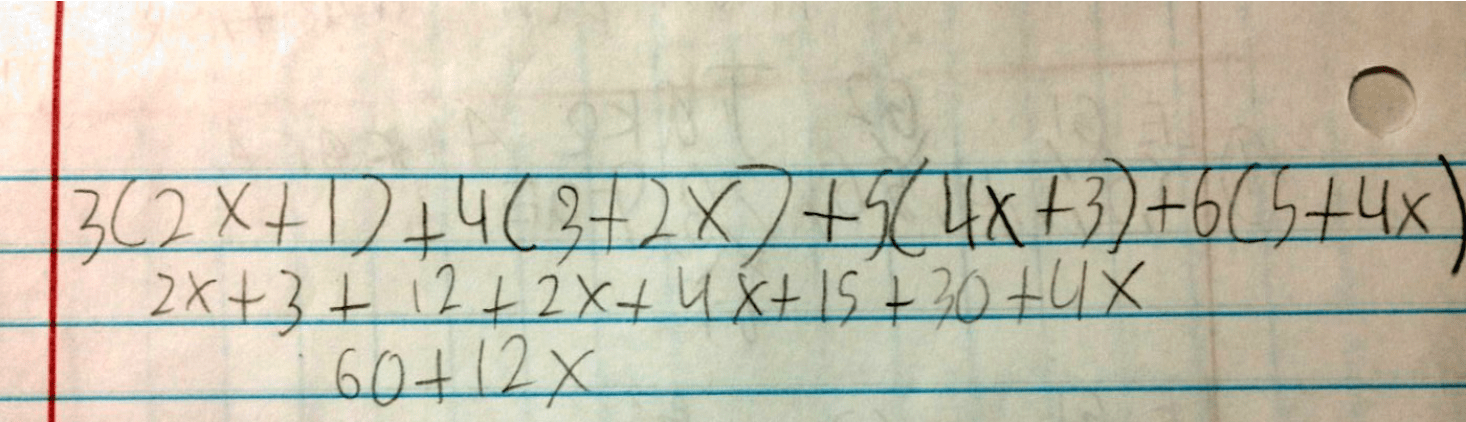 3(2x+1)+4(3+2x)+5(4x+3)+6(5+4x)
2x+3+12+2x+4x+15+30+4x
60+12x